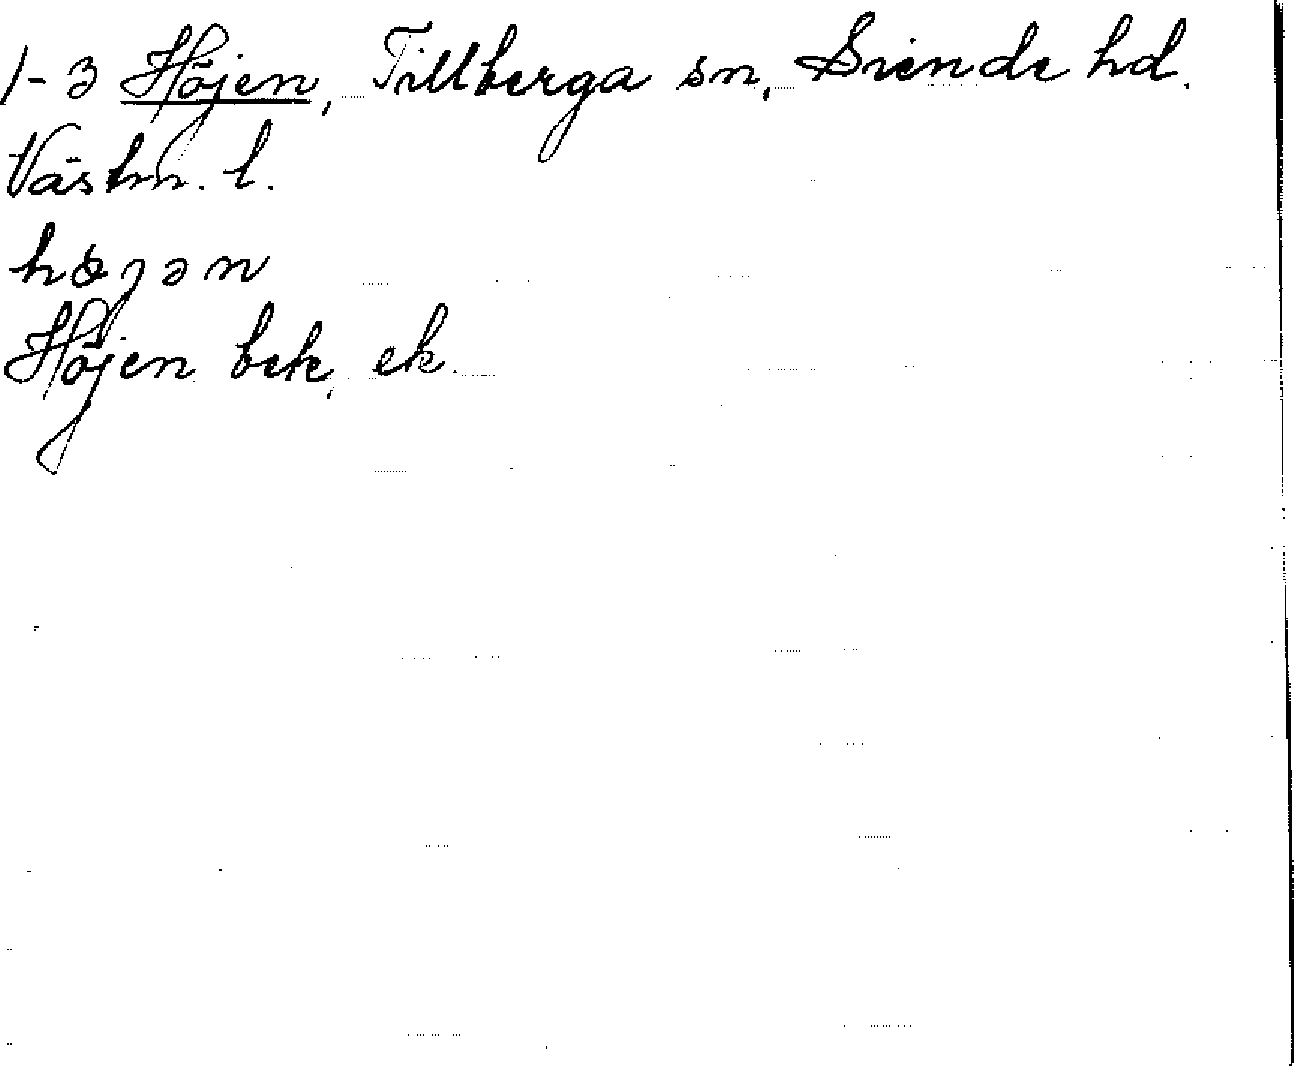 1-3 Höjen, Tillberga sn, Siende hd.
Västm. l.
Höjen bek, ek.